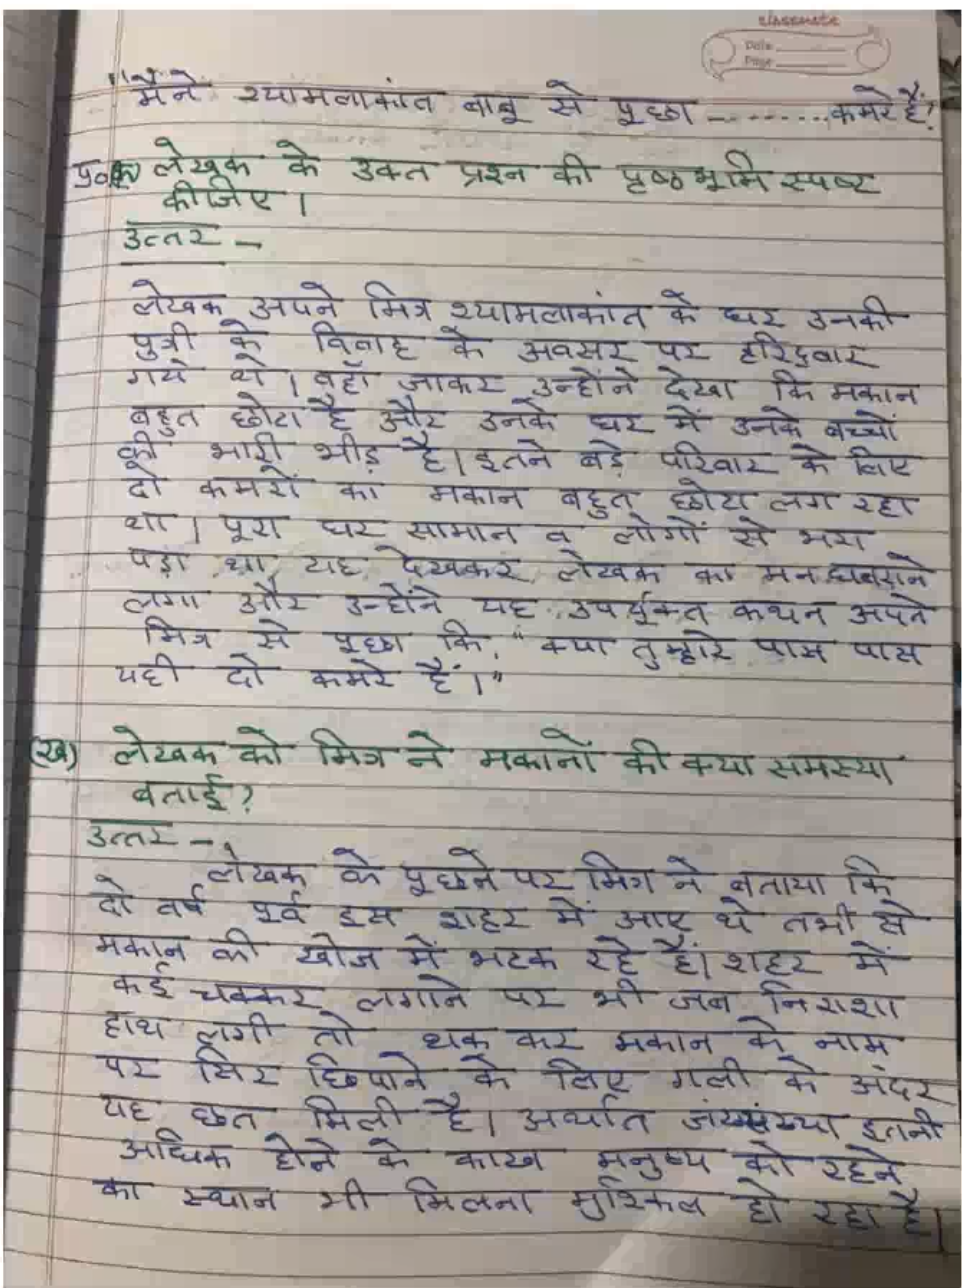 classmate
Date
Page
"मैने श्यामलाकांत बाबू से पूछा -------- कमरे हैं?
प्र०(क) लेखक के उक्त प्रश्न की पृष्ठभूमि स्पष्ट
कीजिए।
उत्तर -
लेखक अपने मित्र श्यामलाकांत के घर उनकी
पुत्री के विवाह के अवसर पर हरिदुवार
गये थे। वहाँ जाकर उन्होंने देखा कि मकान
बहुत छोटा है और उनके घर में उनके बच्चों
की भारी भीड़ है। इतने बड़े परिवार के लिए
दो कमरों का मकान बहुत छोटा लग रहा
था। पूरा घर सामान व लोगों से भरा
पड़ा था, यह देखकर लेखक का मन घबराने
लगा और उन्होंने यह उपर्युक्त कथन अपने
मित्र से पूछा कि, "क्या तुम्हारे पास पास
यही दो कमरे हैं।"
(ख) लेखक को मित्र ने मकानों की क्या समस्या
बताई?
उत्तर -
लेखक के पूछने पर मित्र ने बताया कि
दो वर्ष पूर्व इस शहर में आए थे तभी से
मकान की खोज में भटक रहे हैं। शहर में
कई चक्कर लगाने पर भी जब निराशा
हाथ लगी तो थक कर मकान के नाम
पर सिर छिपाने के लिए गली के अंदर
यह छत मिली है। अर्थात इतनी
अधिक होने के कारण मनुष्य को रहने
का स्थान भी मिलना मुश्किल हो रहा है।